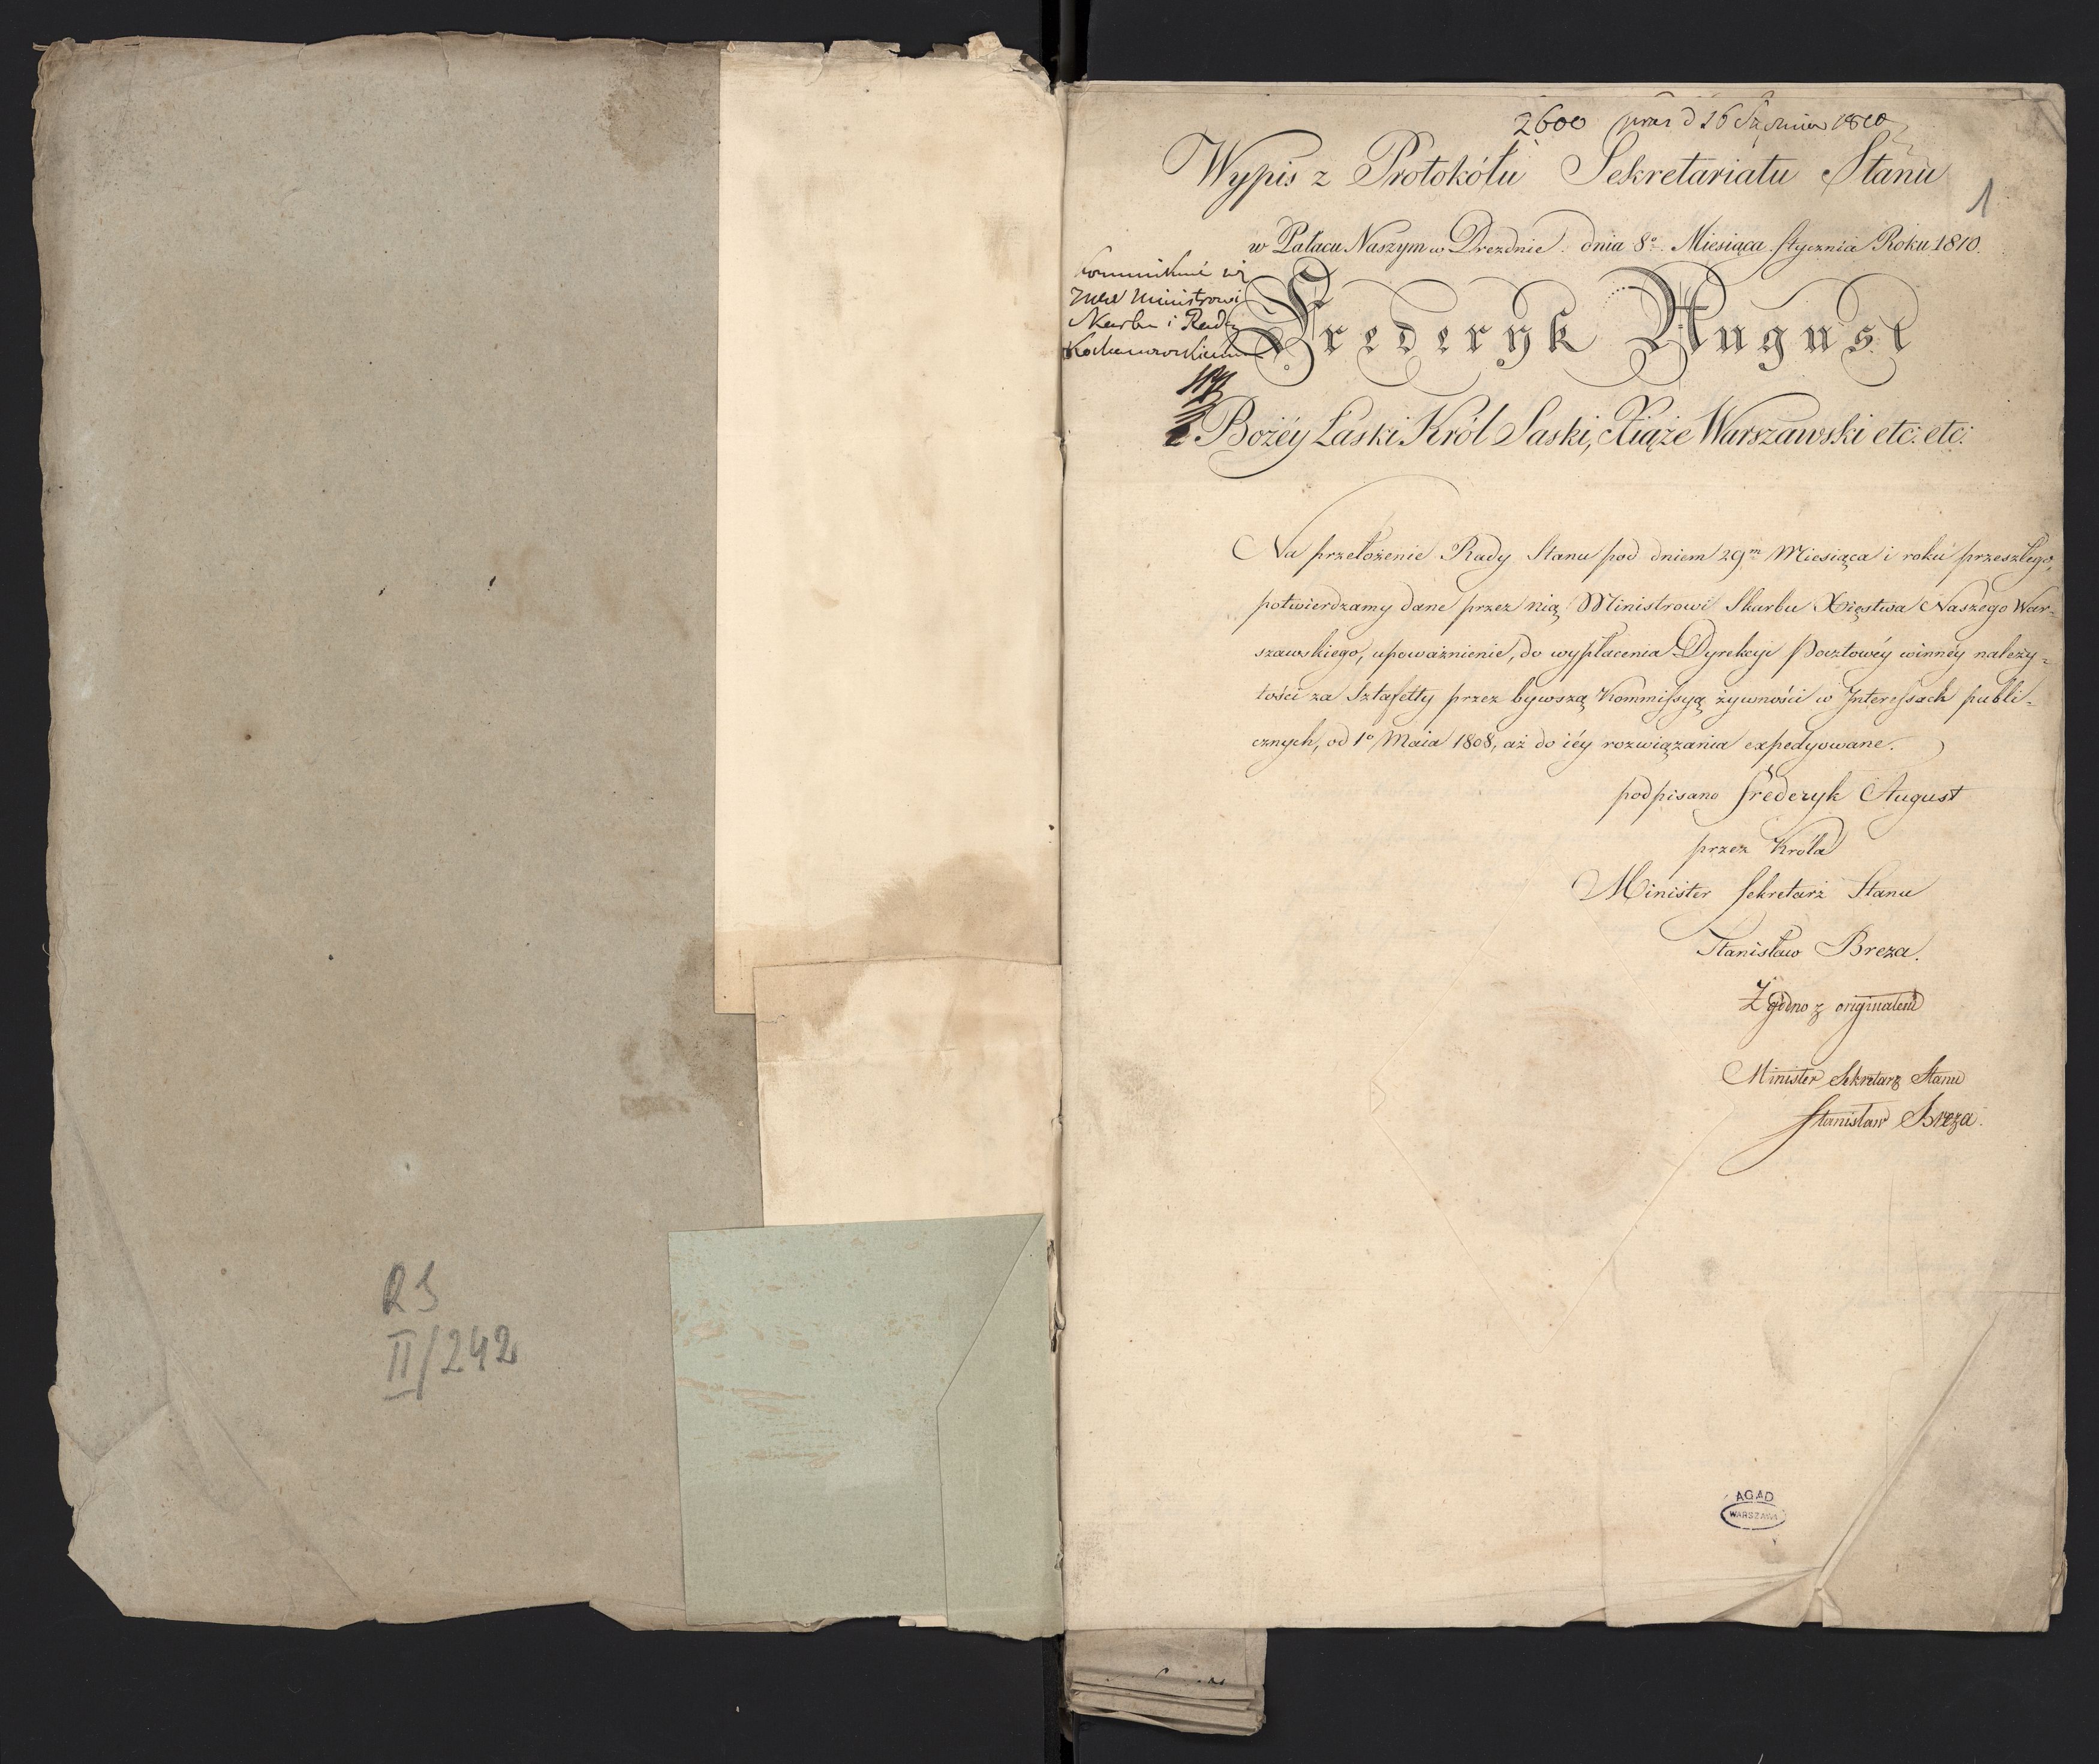 R S
II/242
2600 præs d 16 Stycznia 1810
Wypis z Protokółu Sekretariatu Stanu
1
w Pałacu Naszym w Dreznie dnia 8º Miesiąca Stycznia Roku 1810.
Ministrowi
Skarbu i Radcy
Kochanowskiemu
Frederyk August
z Bożéy Łaski Król Saski, Xiąże Warszawski etc: etc:
Na przełożenie Rady Stanu pod dniem 29m Miesiąca i roku przeszłego,
potwierdzamy dane przez nią Ministrowi Skarbu Xięstwa Naszego War-
szawskiego, upoważnienie, do wypłacenia Dyrekcyi Pocztowéy winnéy należy-
tości za Sztafetty przez bywszą Kommissyą żywności w Interessach publi-
cznych, od 1º Maia 1808, aż do iéy rozwiązania expedyowane.
podpisano Frederyk August
przez Króla
Minister Sekretarz Stanu
Stanisław Breza.
Zgodno z originałem
Minister Sekretarz Stanu
Stanisław Breza.
AGAD
WARSZAWA